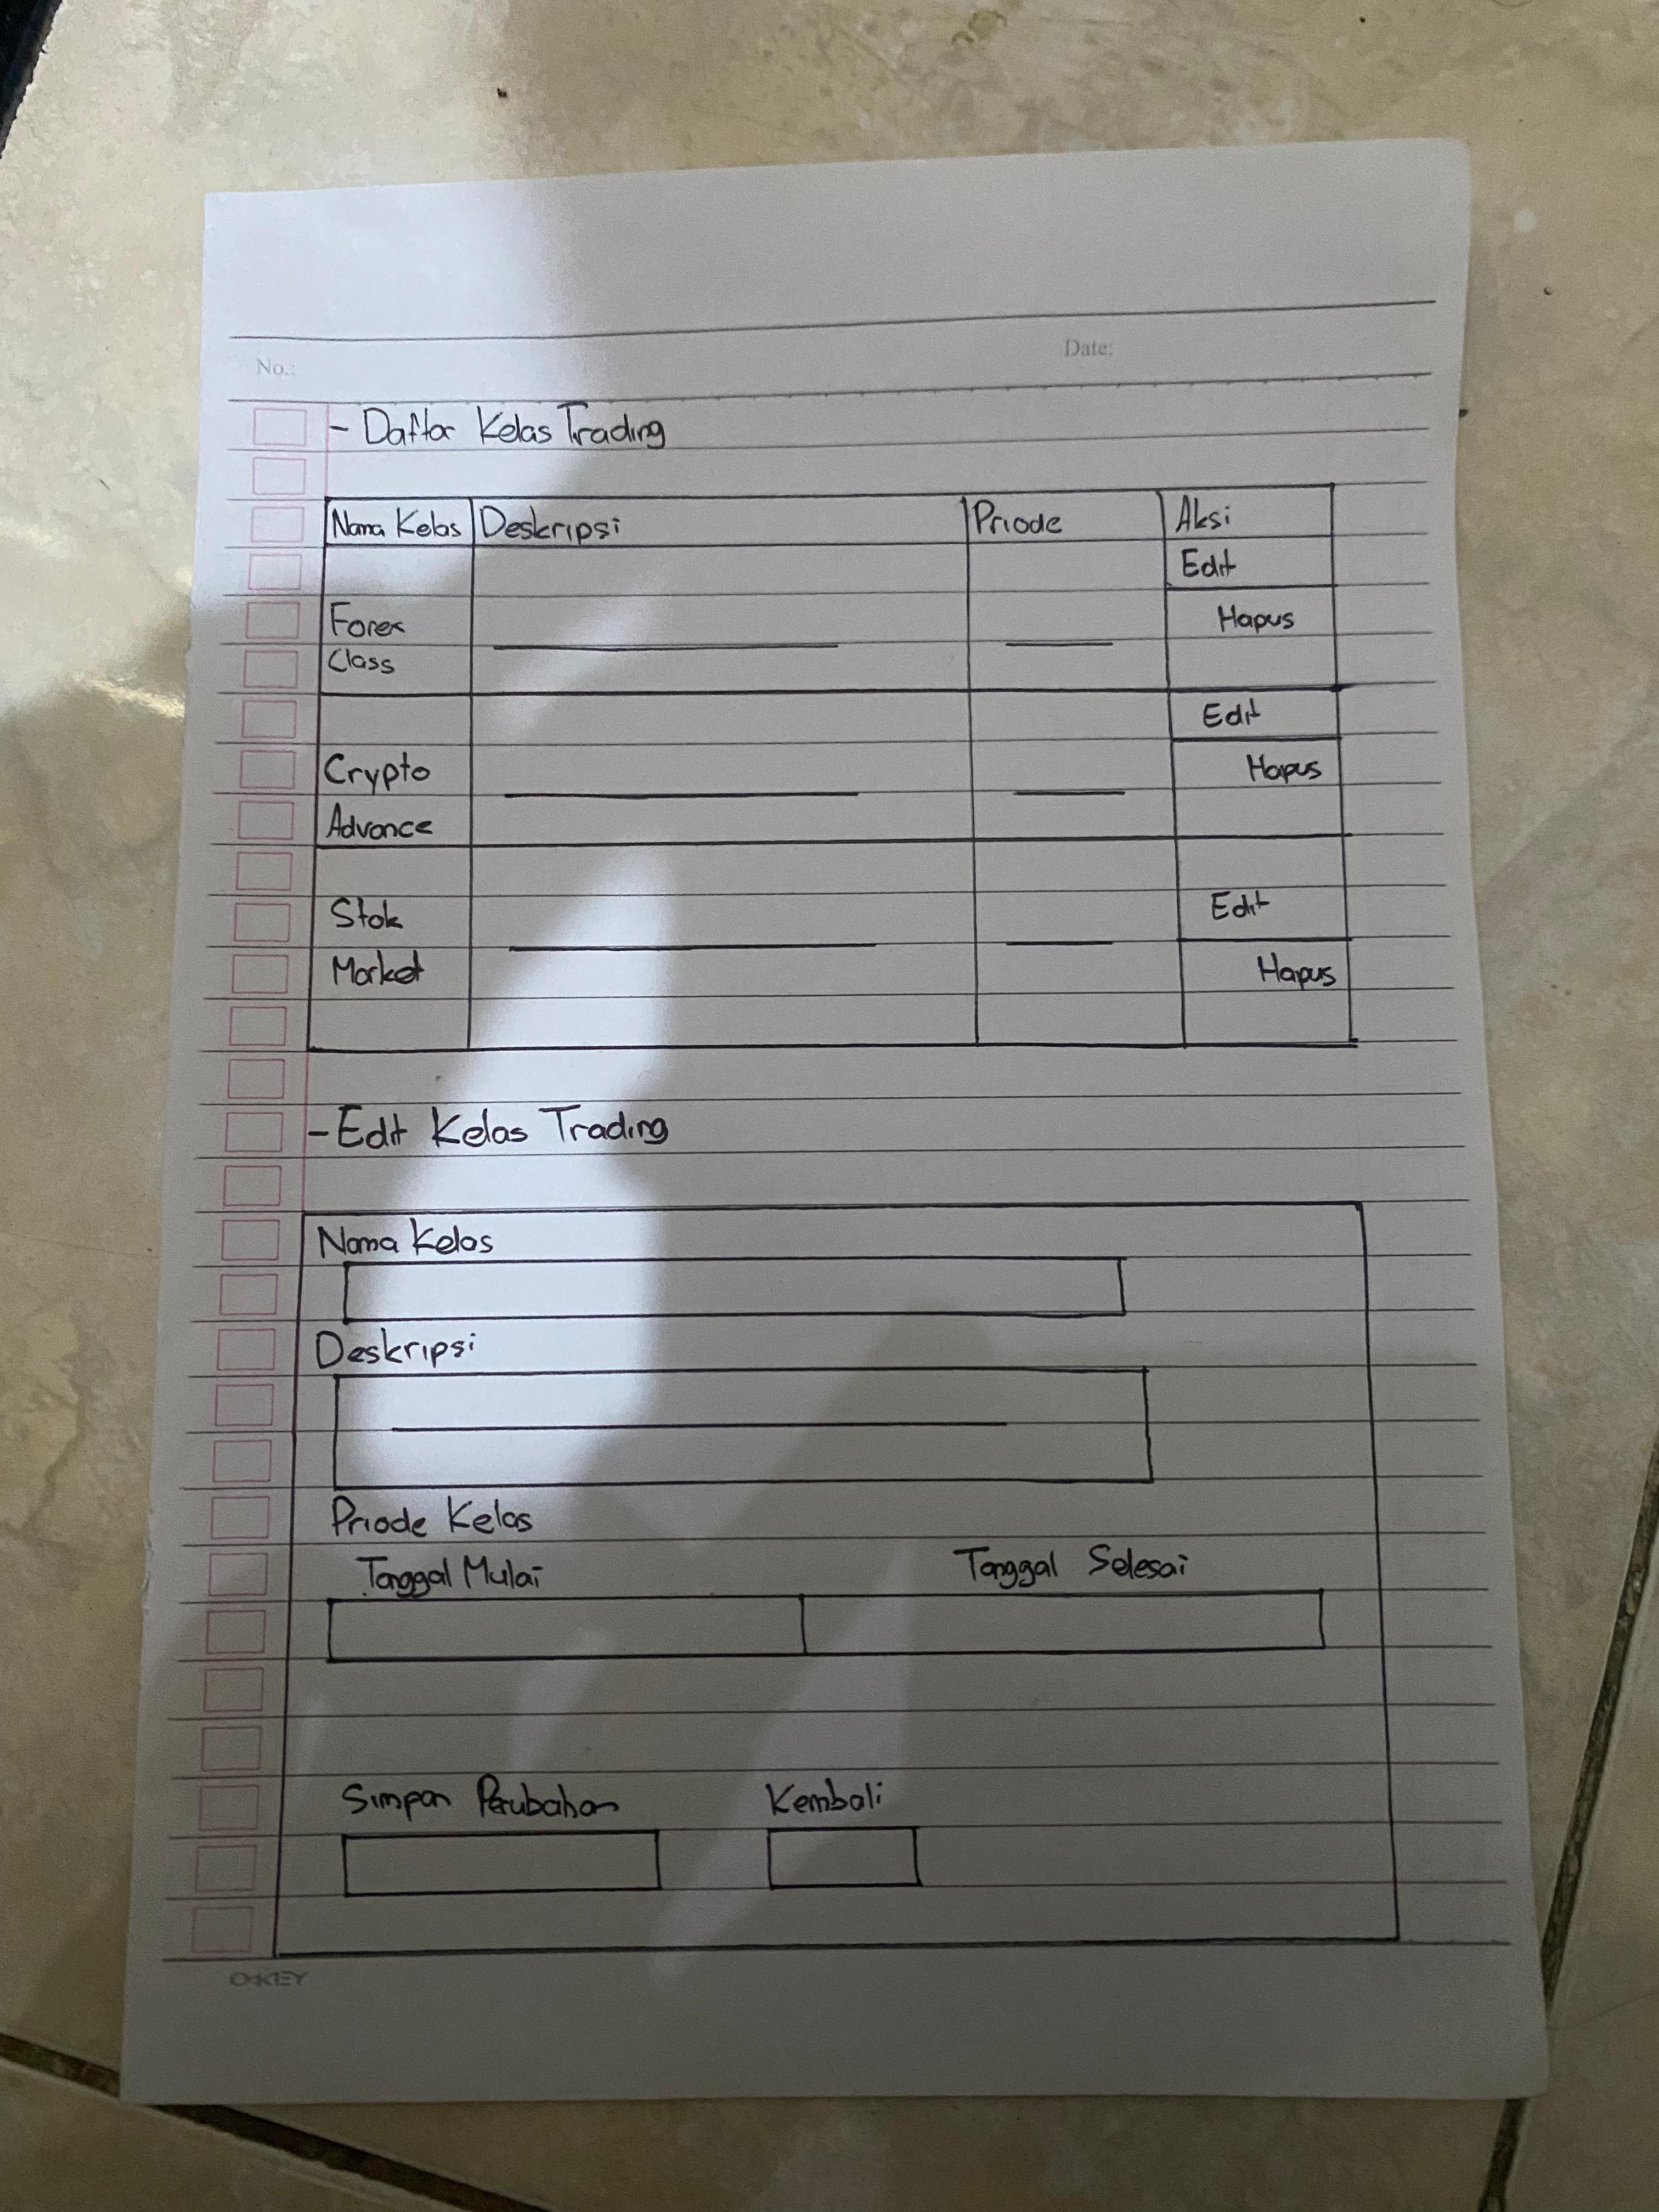 No.:
Date:
- Daftar Kelas Trading
Nama Kelas Deskripsi Priode Aksi
Edit
Forex Hapus
Class
Edit
Crypto Hapus
Advance
Stok Edit
Market Hapus
- Edit Kelas Trading
Nama Kelas
Deskripsi
Priode Kelas
Tanggal Mulai Tanggal Selesai
Simpan Perubahan Kembali
O-KEY